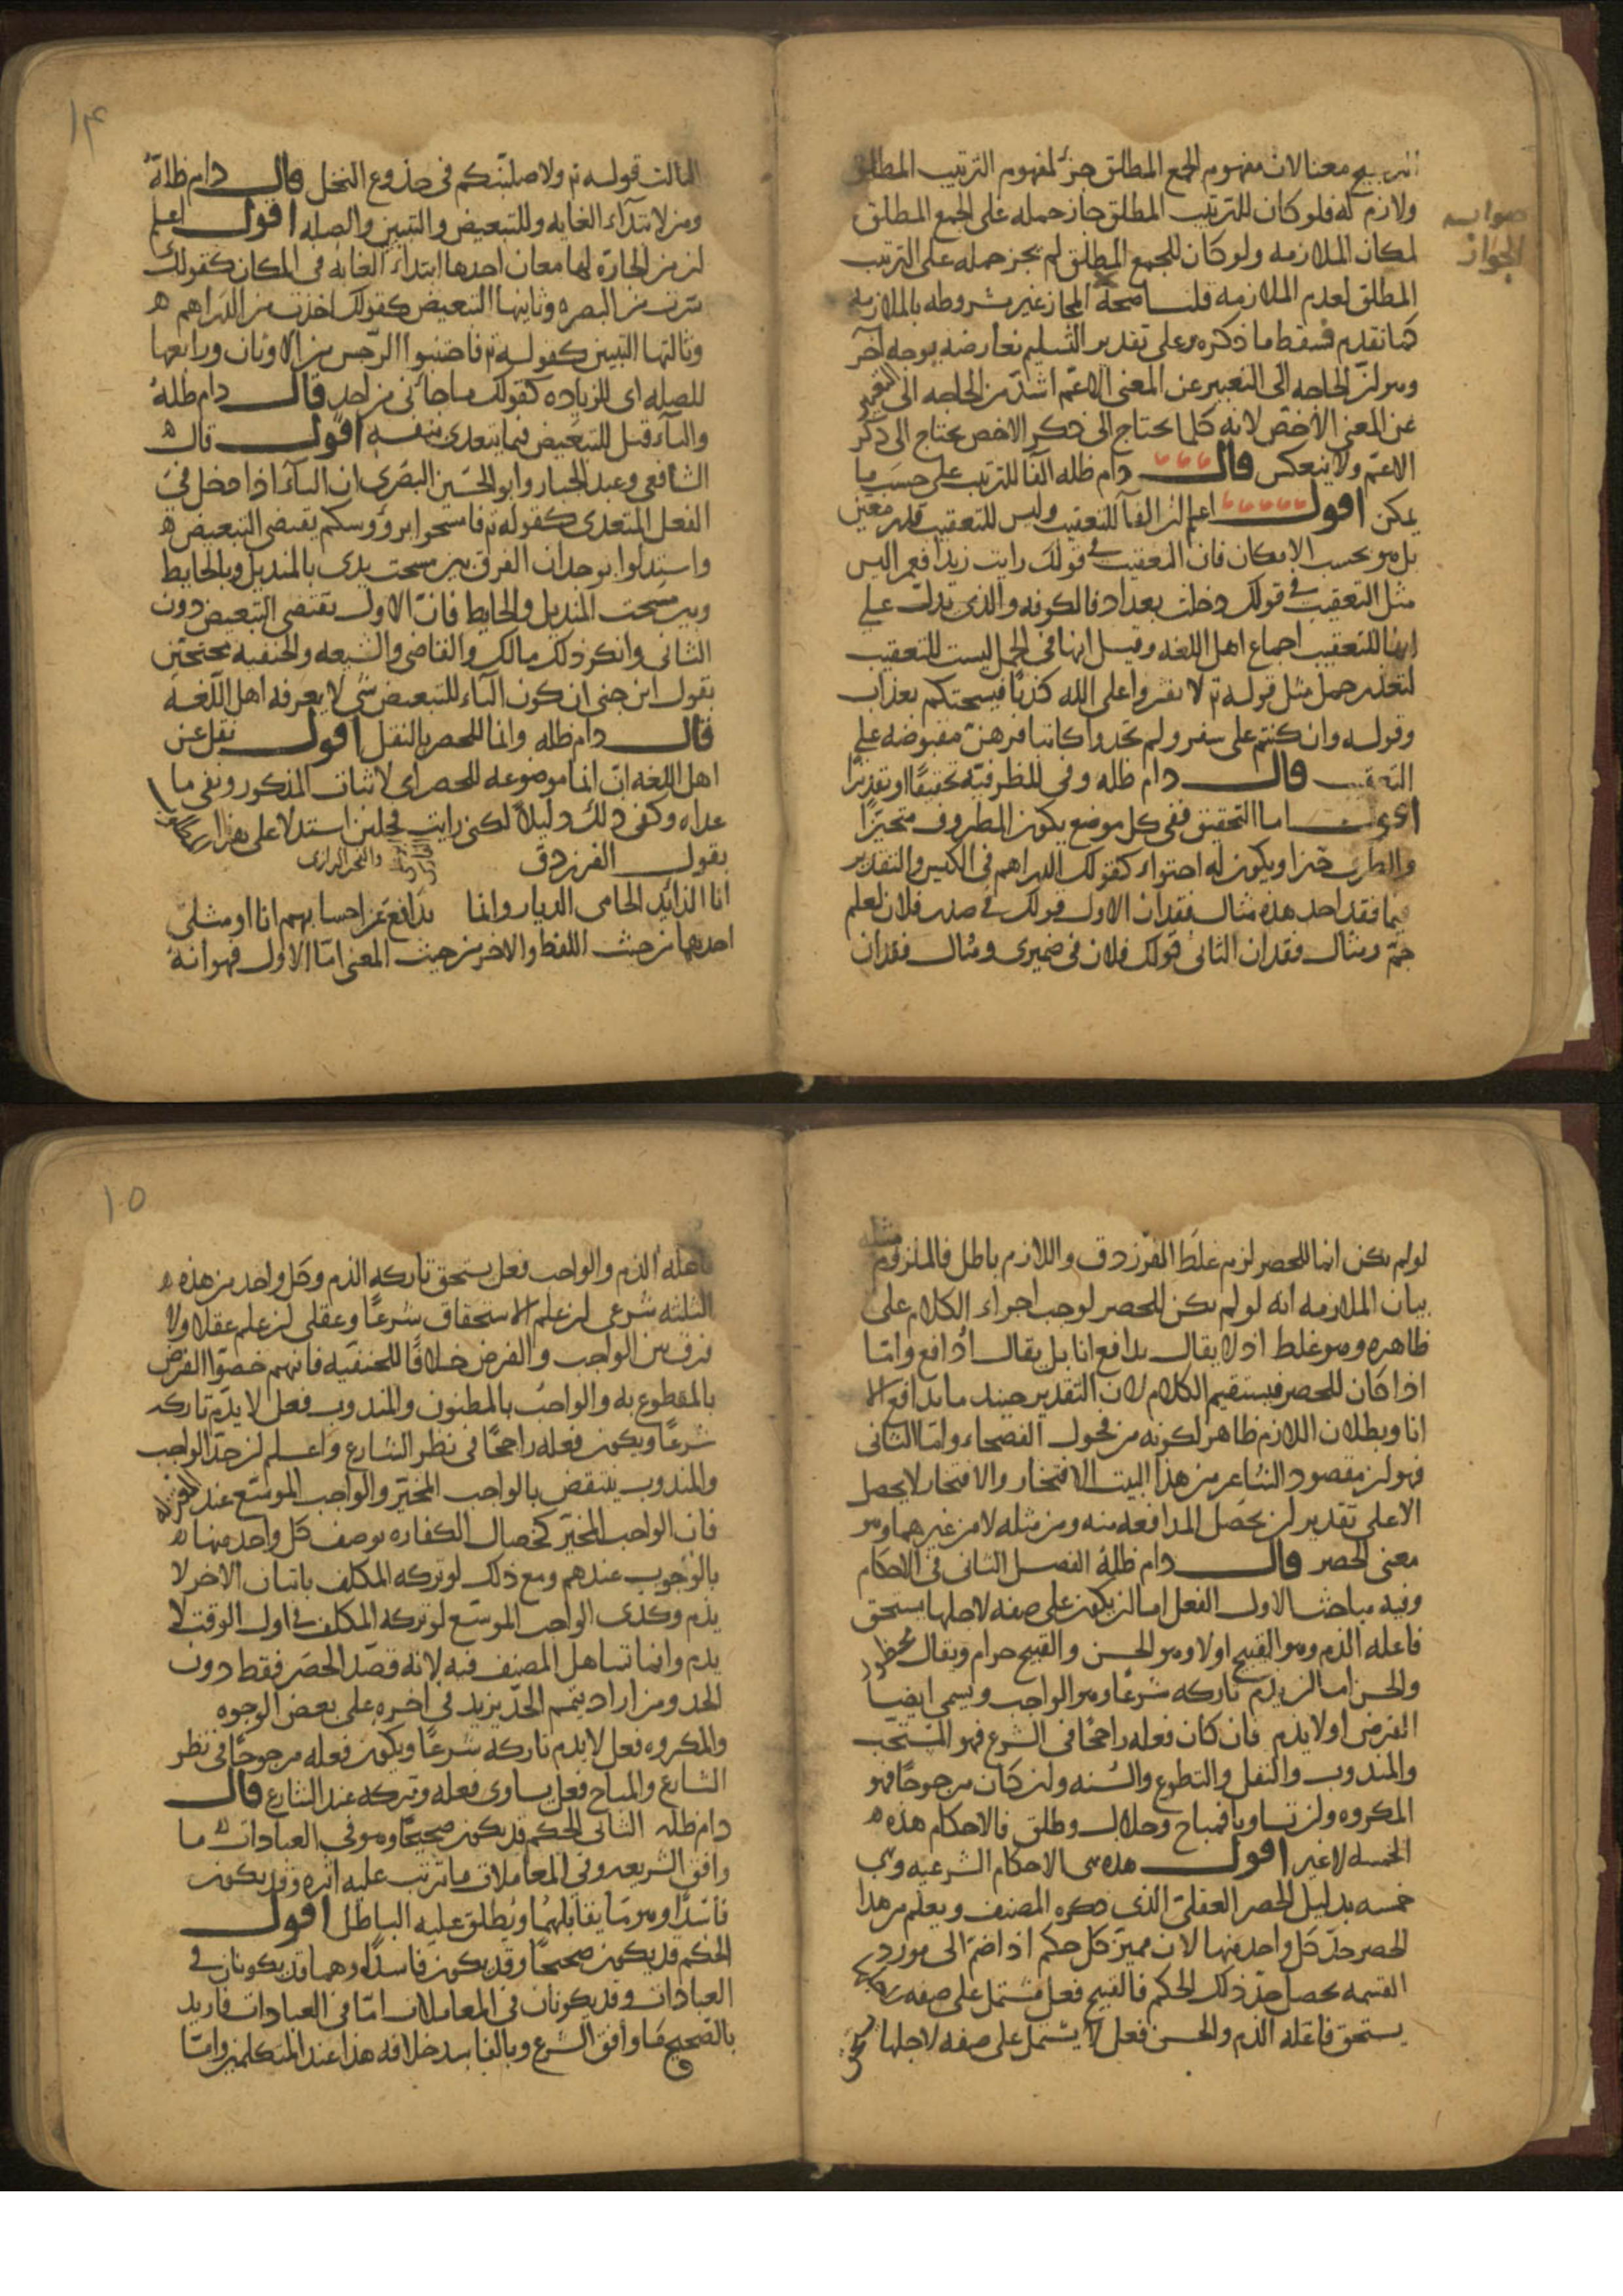 الترجيح معنا لان مفهوم الجمع المطلق جزء لمفهوم الترتيب المطلق
ولازم له فلو كان للترتيب المطلق جاز حمله على الجمع المطلق
صوابه
الجواز
لمكان الملازمه ولو كان للجمع المطلق لم يجز حمله على الترتيب
المطلق لعدم الملازمه قلنا صحة المجاز غير مشروطه بالملازمه
كما تقدم فسقط ما ذكره وعلى تقدير التسليم نعارضه بوجه آخر
وهو ان الحاجه الى التعبير عن المعنى الاعم اشد من الحاجه الى التعبير
عن المعنى الاخص لانه كلما يحتاج الى ذكر الاخص يحتاج الى ذكر
الاعم ولا ينعكس قال دام ظله الفا للترتيب على حسب ما
يمكن اقول اعلم ان الفآ للتعقيب وليس للتعقيب قدر معين
بل هو بحسب الامكان فان التعقيب في قولك رايت زيدا فعمرا ليس
مثل التعقيب في قولك دخلت بغداد فالكوفه والذي يدل على
انها للتعقيب اجماع اهل اللغه وقيل انها في الجمل ليست للتعقيب
لتعذر حمل مثل قوله تم لا تفتروا على الله كذبا فيسحتكم بعذاب
وقوله وان كنتم على سفر ولم تجدوا كاتبا فرهن مقبوضه على
التعقيب قال دام ظله وفي للظرفيه تحقيقا او تقديرا
اقول اما التحقيق ففي كل موضع يكون المظروف متحيزا
والظرف حيزا ويكون له احتواء كقولك الدراهم في الكيس والتقدير
فيما فقد احد هذه مثال فقدان الاول قولك في صدر فلان لعلم
جم ومثال فقدان الثاني قولك فلان في ضميري ومثال فقدان
١٤
الثالث قوله تم ولاصلبنكم في جذوع النخل قال دام ظله
ومن لابتداء الغايه وللتبعيض والتبيين والصله اقول اعلم
ان من الجارة لها معان احدها ابتداء الغايه في المكان كقولك
سرت من البصره وثانيها التبعيض كقولك اخذت من الدراهم ه
وثالثها التبيين كقوله تم فاجتنبوا الرجس من الاوثان ورابعها
للصله اى للزياده كقولك ما جآئني من احد قال دام ظله
والبآء قيل للتبعيض فيما يتعدى بنفسه اقول قال ه
الشافعي وعبد الجبار وابو الحسين البصري ان البآء اذا دخل في
الفعل المتعدي كقوله تم فامسحوا برؤوسكم يقتضي التبعيض ه
واستدلوا بوجدان الفرق بين مسحت يدى بالمنديل وبالحايط
وبين مسحت المنديل والحايط فان الاول يقتضي التبعيض دون
الثاني وانكر ذلك مالك والقاضي والشيعه والحنفيه محتجين
بقول ابن جني ان كون البآء للتبعيض شي لا يعرفه اهل اللغه
قال دام ظله وانما للحصر بالنقل اقول نقل عن
اهل اللغه ان انما موضوعه للحصر اى لاثبات المذكور ونفي ما
عداه وكفى ذلك دليلا لكني رايت فحلين استدلا على هذا
والفخر الرازى
بقول الفرزدق
انا الذايد الحامى الديار وانما يدافع عن احسابهم انا او مثلي
احدهما من حيث اللفظ والاخر من حيث المعنى اما الاول فهو انه
لو لم يكن انما للحصر لزم غلط الفرزدق واللازم باطل فالملزوم
مثله
بيان الملازمه انه لو لم يكن للحصر لوجب اجراء الكلام على
ظاهره وهو غلط اذ لا يقال يدافع انا بل يقال ادافع واما
اذا كان للحصر فيستقيم الكلام لان التقدير حينئذ ما يدافع الا
انا وبطلان اللازم ظاهر لكونه من فحول الفصحاء واما الثاني
فهو ان مقصود الشاعر من هذا البيت الافتخار والافتخار لا يحصل
الا على تقدير ان يحصل المدافعه منه ومن مثله لا من غيرهما وهو
معنى الحصر قال دام ظله الفصل الثاني في الاحكام
وفيه مباحث الاول الفعل اما ان يكون على صفه لاجلها يستحق
فاعله الذم وهو القبيح او لا وهو الحسن والقبيح حرام ويقال محظور
والحسن اما ان يذم تاركه شرعا وهو الواجب ويسمى ايضا
الفرض او لا يذم فان كان فعله راجحا في الشرع فهو المستحب
والمندوب والنفل والتطوع والسنه وان كان مرجوحا فهو
المكروه وان تساويا فمباح وحلال وطلق فالاحكام هذه ه
الخمسه لا غير اقول هذه هى الاحكام الشرعيه وهي
خمسه بدليل الحصر العقلي الذي ذكره المصنف ويعلم من هذا
الحصر حد كل واحد منها لان مميز كل حكم اذا ضم الى مورد
القسمه يحصل حد ذلك الحكم فالقبيح فعل مشتمل على صفه
يستحق فاعله الذم والحسن فعل لا يشتمل على صفه لاجلها
١٥
فاعله الذم والواجب فعل يستحق تاركه الذم وكل واحد من هذه ه
الثلثه شرعي ان علم الاستحقاق شرعا وعقلي ان علم عقلا ولا
فرق بين الواجب والفرض خلافا للحنفيه فانهم خصوا الفرض
بالمقطوع به والواجب بالمظنون والمندوب فعل لا يذم تاركه
شرعا ويكون فعله راجحا في نظر الشارع واعلم ان حد الواجب
والمندوب ينتقض بالواجب المخير والواجب الموسع عند المعتزله
فان الواجب المخير كخصال الكفاره يوصف كل واحد منها ه
بالوجوب عندهم ومع ذلك لو تركه المكلف باتيان الاخر لا
يذم وكذى الواجب الموسع لو تركه المكلف في اول الوقت لا
يذم وانما تساهل المصنف فيه لانه قصد الحصر فقط دون
الحد ومن اراد يتمم الحد يزيد في اخره على بعض الوجوه
والمكروه فعل لا يذم تاركه شرعا ويكون فعله مرجوحا في نظر
الشارع والمباح فعل يساوى فعله وتركه عند الشارع قال
دام ظله الثاني الحكم قد يكون صحيحا وهو في العبادات ما
وافق الشريعه وفي المعاملات ما ترتب عليه اثره وقد يكون
فاسدا وهو ما يقابلهما ويطلق عليه الباطل اقول
الحكم قد يكون صحيحا وقد يكون فاسدا وهما قد يكونان في
العبادات وقد يكونان في المعاملات اما في العبادات فاريد
بالصحيح ما وافق الشرع وبالفاسد خلافه هذا عند المتكلمين واما